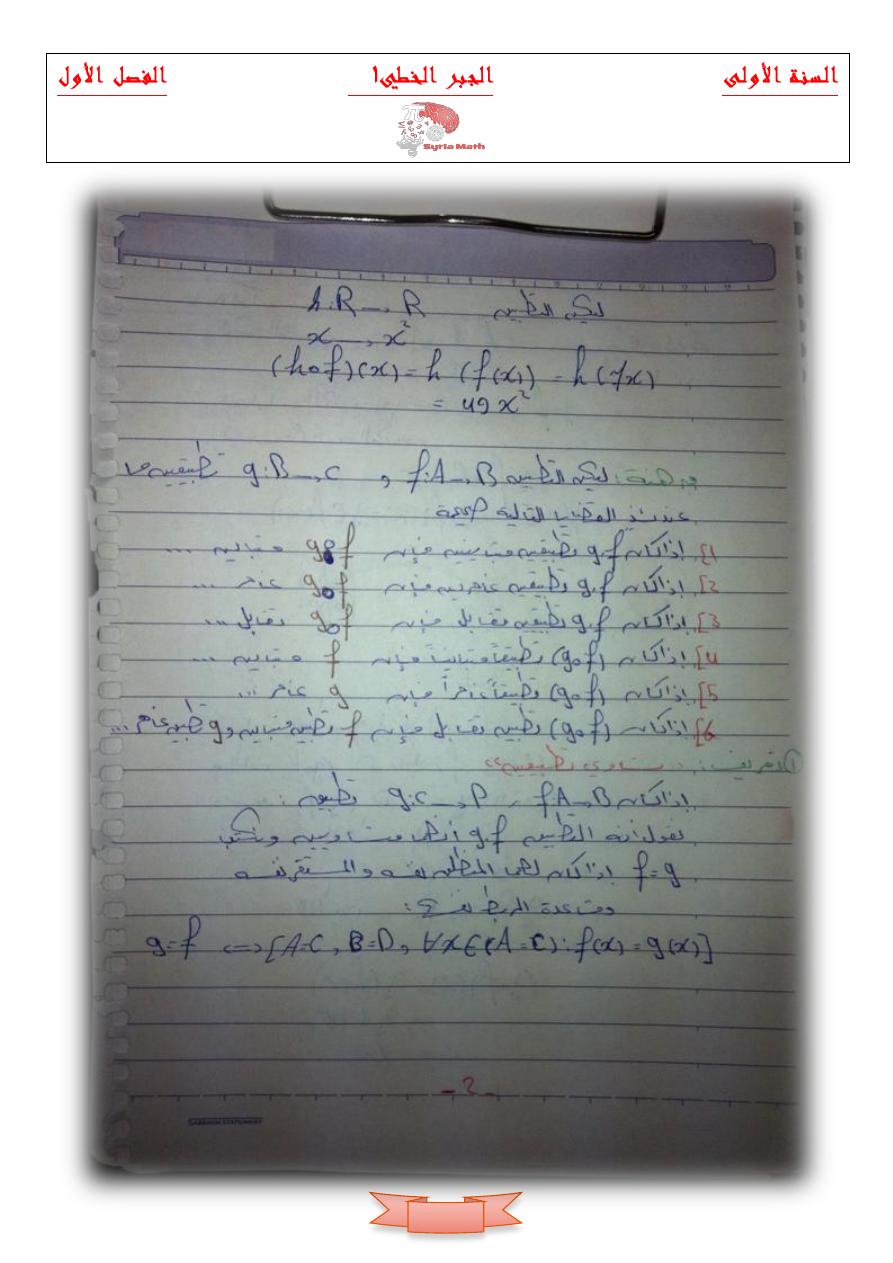 السنة الأولى الجبر الخطي1 الفصل الأول
Syria Math
ليكن التطبيق h: R → R
x → x²
(h∘f)(x) = h (f(x)) = h(7x)
= 49x²
مبرهنة: ليكن التطبيق f: A → B و g: B → C تطبيقين
عندئذٍ القضايا التالية صحيحة
1] إذا كان g,f تطبيقين متباينين فإن g∘f متباين ...
2] إذا كان g,f تطبيقين غامرين فإن g∘f غامر ...
3] إذا كان g,f تطبيقين تقابل فإن g∘f تقابل ...
4] إذا كان (g∘f) تطبيقاً متبايناً فإن f متباين ...
5] إذا كان (g∘f) تطبيقاً غامراً فإن g غامر ...
6] إذا كان (g∘f) تطبيق تقابل فإن f تطبيق متباين و g تطبيق غامر ...
① تعريف: تساوي تطبيقين
إذا كان f A → B , g: C → D تطبيق :
نقول أن التطبيق g,f أنهما متساويين ونكتب
f = g إذا كان لهما المنطلق نفسه والمستقر نفسه
وقاعدة الربط نفسها:
g = f ⟺ [A=C, B=D, ∀x∈(A=C): f(x) = g(x)]
- 2 -